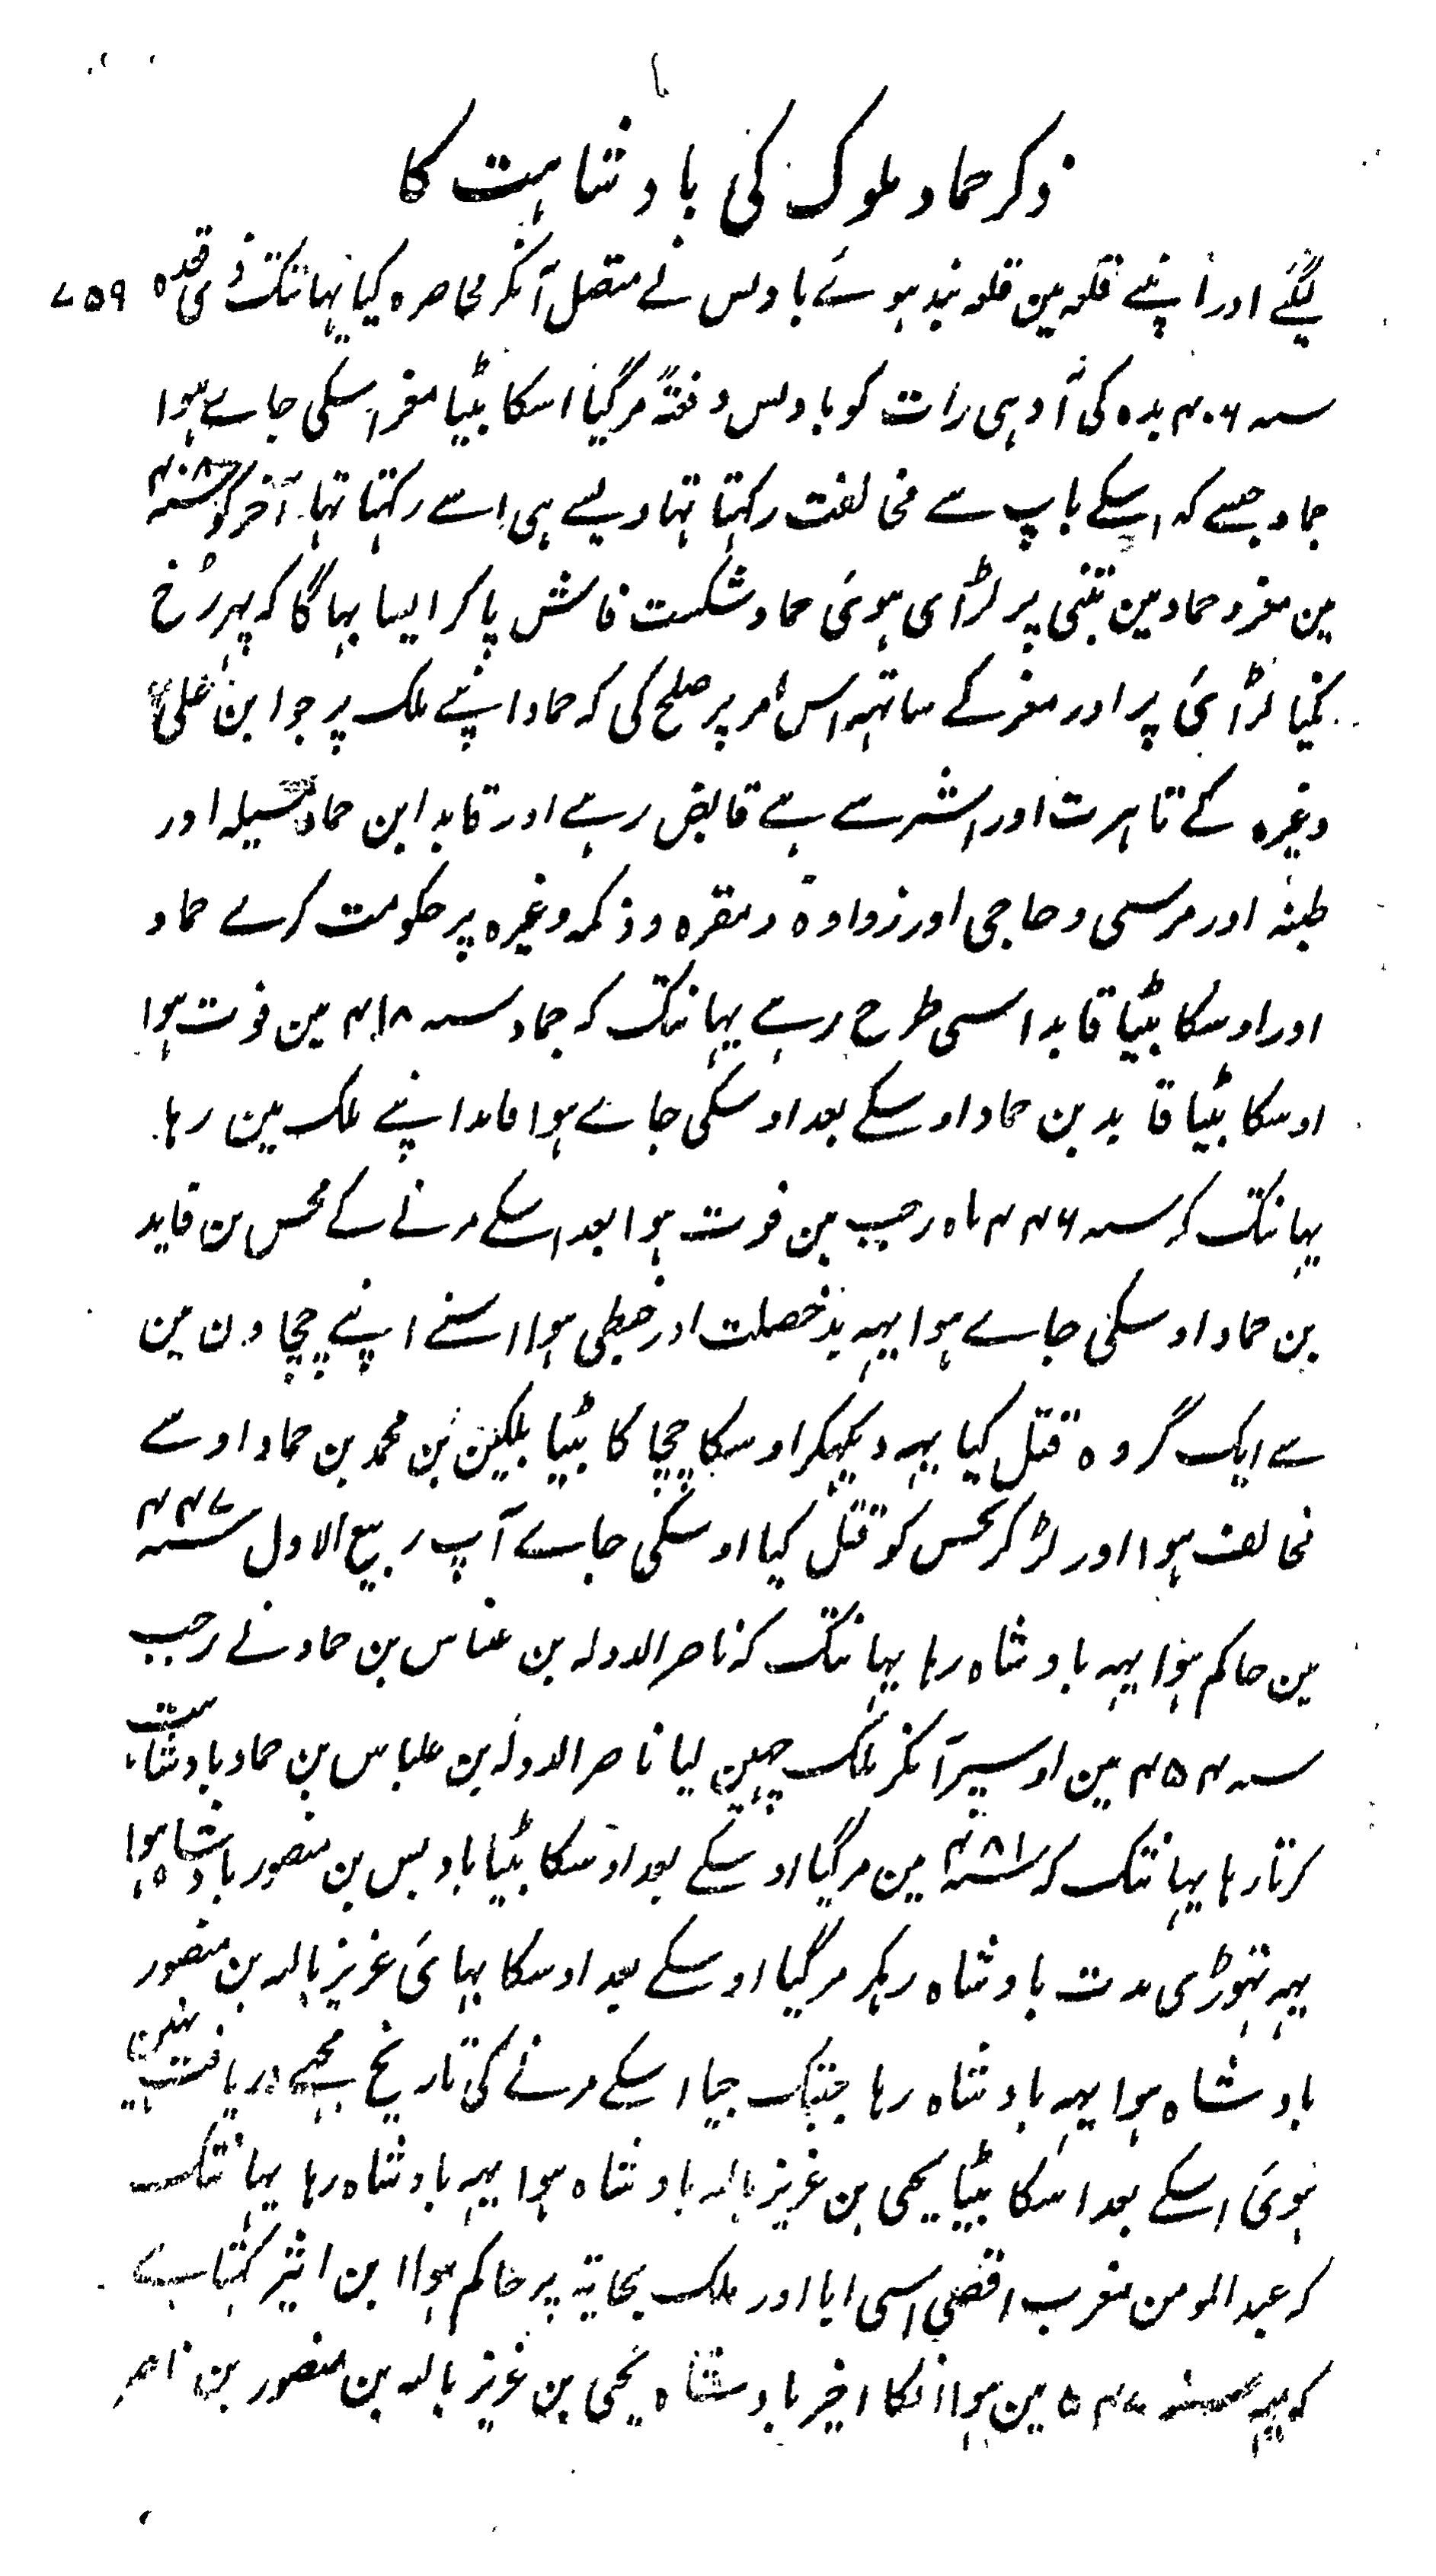 ذکر حماد ملوک کی بادشاہت کا
لیگئے اور اپنے قلعہ مین قلعہ بند ہوئے بادیس نے متصل آنکر محاصرہ کیا یہانتک ذی قعدہ ۷۵۹
سنہ ۴۰۶ بدہ کی آدہی رات کو بادیس دفعتہً مرگیا اسکا بیٹا معز اسکی جاے ہوا
حماد جیسے کہ اسکے باپ سے مخالفت رکہتا تہا ویسے ہی اسے رکہتا تہا آخر کو سنہ ۴۰۸
مین معز و حماد مین بتنی پر لڑای ہوئی حماد شکست فاش پاکر ایسا بہاگا کہ پہر رخ
نکیا لڑائی پر اور معز کے ساتہہ اس امر پر صلح کی کہ حماد اپنے ملک پر جو ابن علی کا
وغیرہ کے تاہرت اور اشر سے ہے قابض رہے اور قاید ابن حماد مسیلہ اور
طبنہ اور مرسی دجاجی اور زواوہ و مقرہ و دکمہ وغیرہ پر حکومت کرے حماد
اور اوسکا بیٹا قاید اسی طرح رہے یہانتک کہ حماد سنہ ۴۱۸ مین فوت ہوا
اوسکا بیٹا قاید بن حماد اوسکے بعد اوسکی جاے ہوا قاید اپنے ملک مین رہا
یہانتک کہ سنہ ۴۴۶ ماہ رجب مین فوت ہوا بعد اسکے مرنے کے محسن بن قاید
بن حماد اوسکی جاے ہوا یہہ بد خصلت اور خبطی ہوا اسنے اپنے چچاون مین
سے ایک گروہ قتل کیا یہہ دیکہکر اوسکا چچا کا بیٹا بلکین بن محمد بن حماد اوسے
مخالف ہوا اور لڑکر محسن کو قتل کیا اوسکی جاے آپ ربیع الاول سنہ ۴۴۷
مین حاکم ہوا یہہ بادشاہ رہا یہانتک کہ ناصر الدولہ بن علناس بن حماد نے رجب
سنہ ۴۵۴ مین اوسپر آنکر ملک چہین لیا ناصر الدولہ بن علناس بن حماد بادشاہت
کرتا رہا یہانتک کہ سنہ ۴۸۱ مین مرگیا اوسکے بعد اوسکا بیٹا بادیس بن منصور بادشاہ ہوا
یہہ تہوڑی مدت بادشاہ رہکر مرگیا اوسکے بعد اوسکا بہائی عزیز باللہ بن منصور
بادشاہ ہوا یہہ بادشاہ رہا جبتک جیا اسکے مرنے کی تاریخ مجہے دریافت نہین
ہوئی اسکے بعد اسکا بیٹا یحیی بن عزیز باللہ بادشاہ ہوا یہہ بادشاہ رہا یہانتک
کہ عبد المومن مغرب اقصی اسی ایا اور ملک بجایہ پر حاکم ہوا ابن اثیر کہتا ہے
کہ یہہ سنہ ۵۴۷ مین ہوا انکا اخیر بادشاہ یحیی بن عزیز باللہ بن منصور بن ناصر